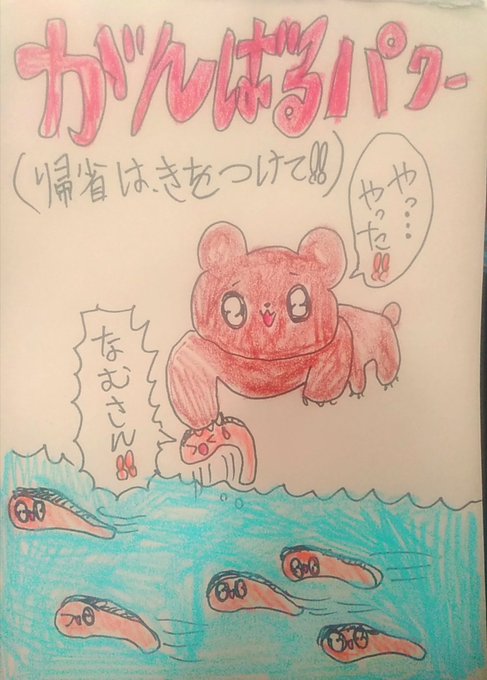 がんばるパワー
(帰省は、きをつけて!!)
やっ…
やった!!
なむさん!!